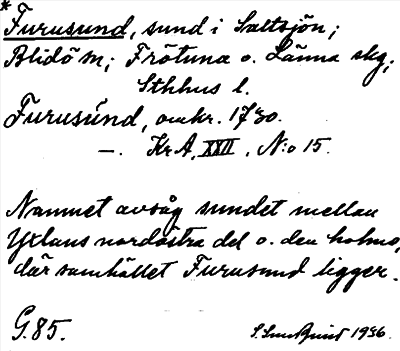 * Furusund, sund i Saltsjön;
Blidö sn; Frötuna o. Länna skg;
Sthlms l.
Furusúnd, omkr. 1730.
—. Kr A, XXII, N:o 15.
Namnet avsåg sundet mellan
Yxlans nordöstra del o. den holme,
där samhället Furusund ligger.
G. 85. 1936.